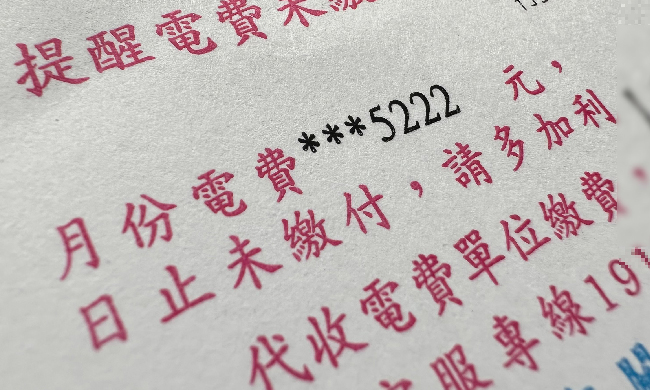 提醒電費未繳
月份電費***5222 元，
日止未繳付，請多加利
代收電費單位繳費
服專線191